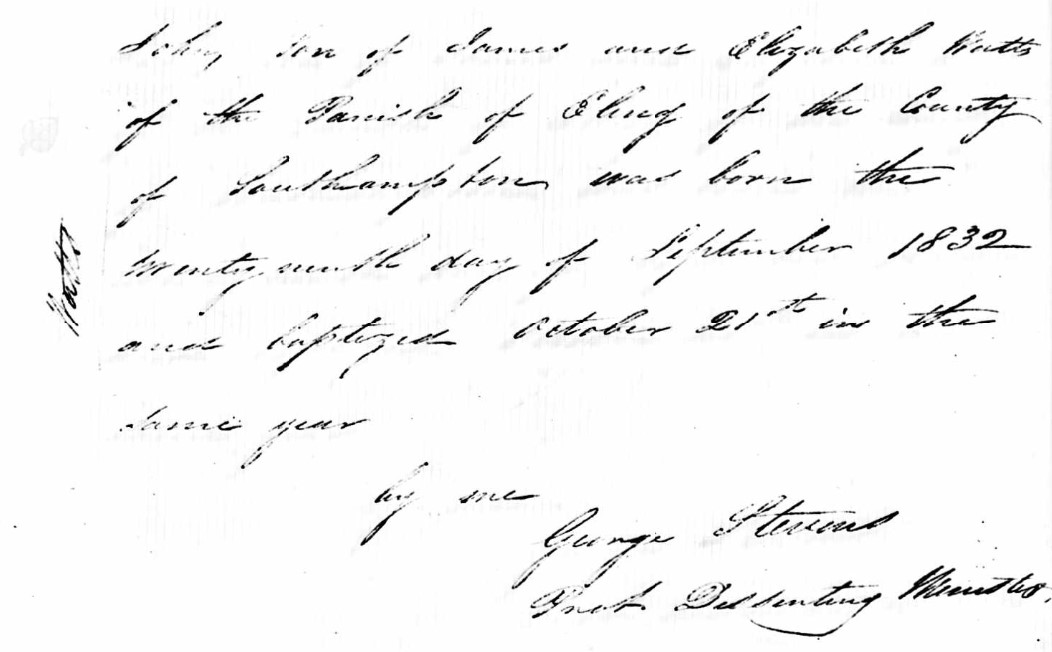 Watts
John, son of James and Elizabeth Watts
of the Parish of Eling of the County
of Southampton was born the
twenty ninth day of September 1832
and baptized October 21st in the
same year
by me
George Stevens
Prot. Dissenting Minister.